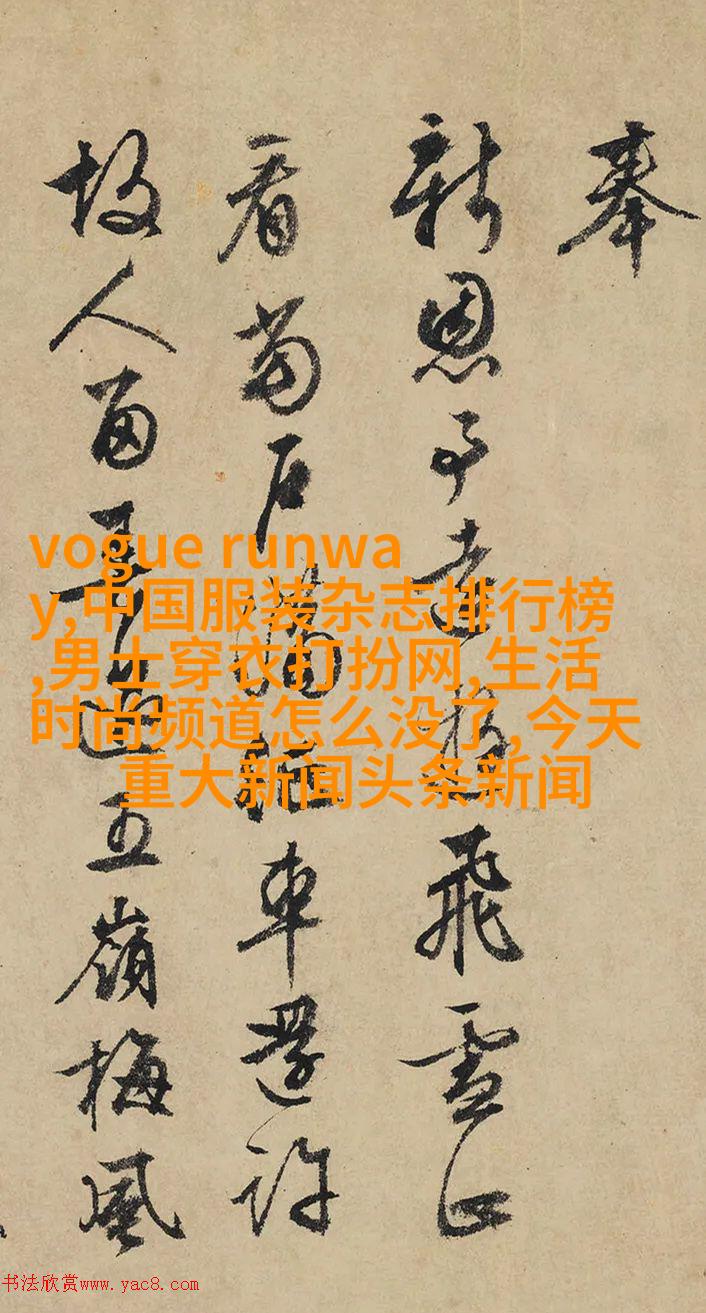 奉
新恩飛雪正
看石滿車還許
故人留過五嶺梅風
vogue runwa
y,中国服装杂志排行榜
,男士穿衣打扮网,生活
时尚频道怎么没了,今天
重大新闻头条新闻
书法欣赏www.yac8.com